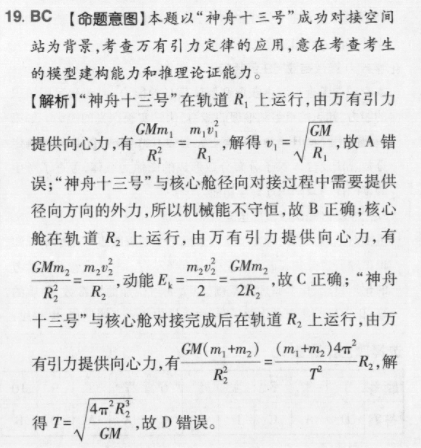 19. BC 【命题意图】本题以“神舟十三号”成功对接空间
站为背景,考查万有引力定律的应用,意在考查考生
的模型建构能力和推理论证能力。
【解析】“神舟十三号”在轨道 R₁ 上运行,由万有引力
提供向心力,有 GMm₁/R₁² = m₁v₁²/R₁,解得 v₁ = √(GM/R₁),故 A 错
误;“神舟十三号”与核心舱径向对接过程中需要提供
径向方向的外力,所以机械能不守恒,故 B 正确;核心
舱在轨道 R₂ 上运行,由万有引力提供向心力,有
GMm₂/R₂² = m₂v₂²/R₂,动能 Eₖ = m₂v₂²/2 = GMm₂/2R₂,故 C 正确;“神舟
十三号”与核心舱对接完成后在轨道 R₂ 上运行,由万
有引力提供向心力,有 GM(m₁+m₂)/R₂² = (m₁+m₂)4π²/T² R₂,解
得 T = √(4π²R₂³/GM),故 D 错误。